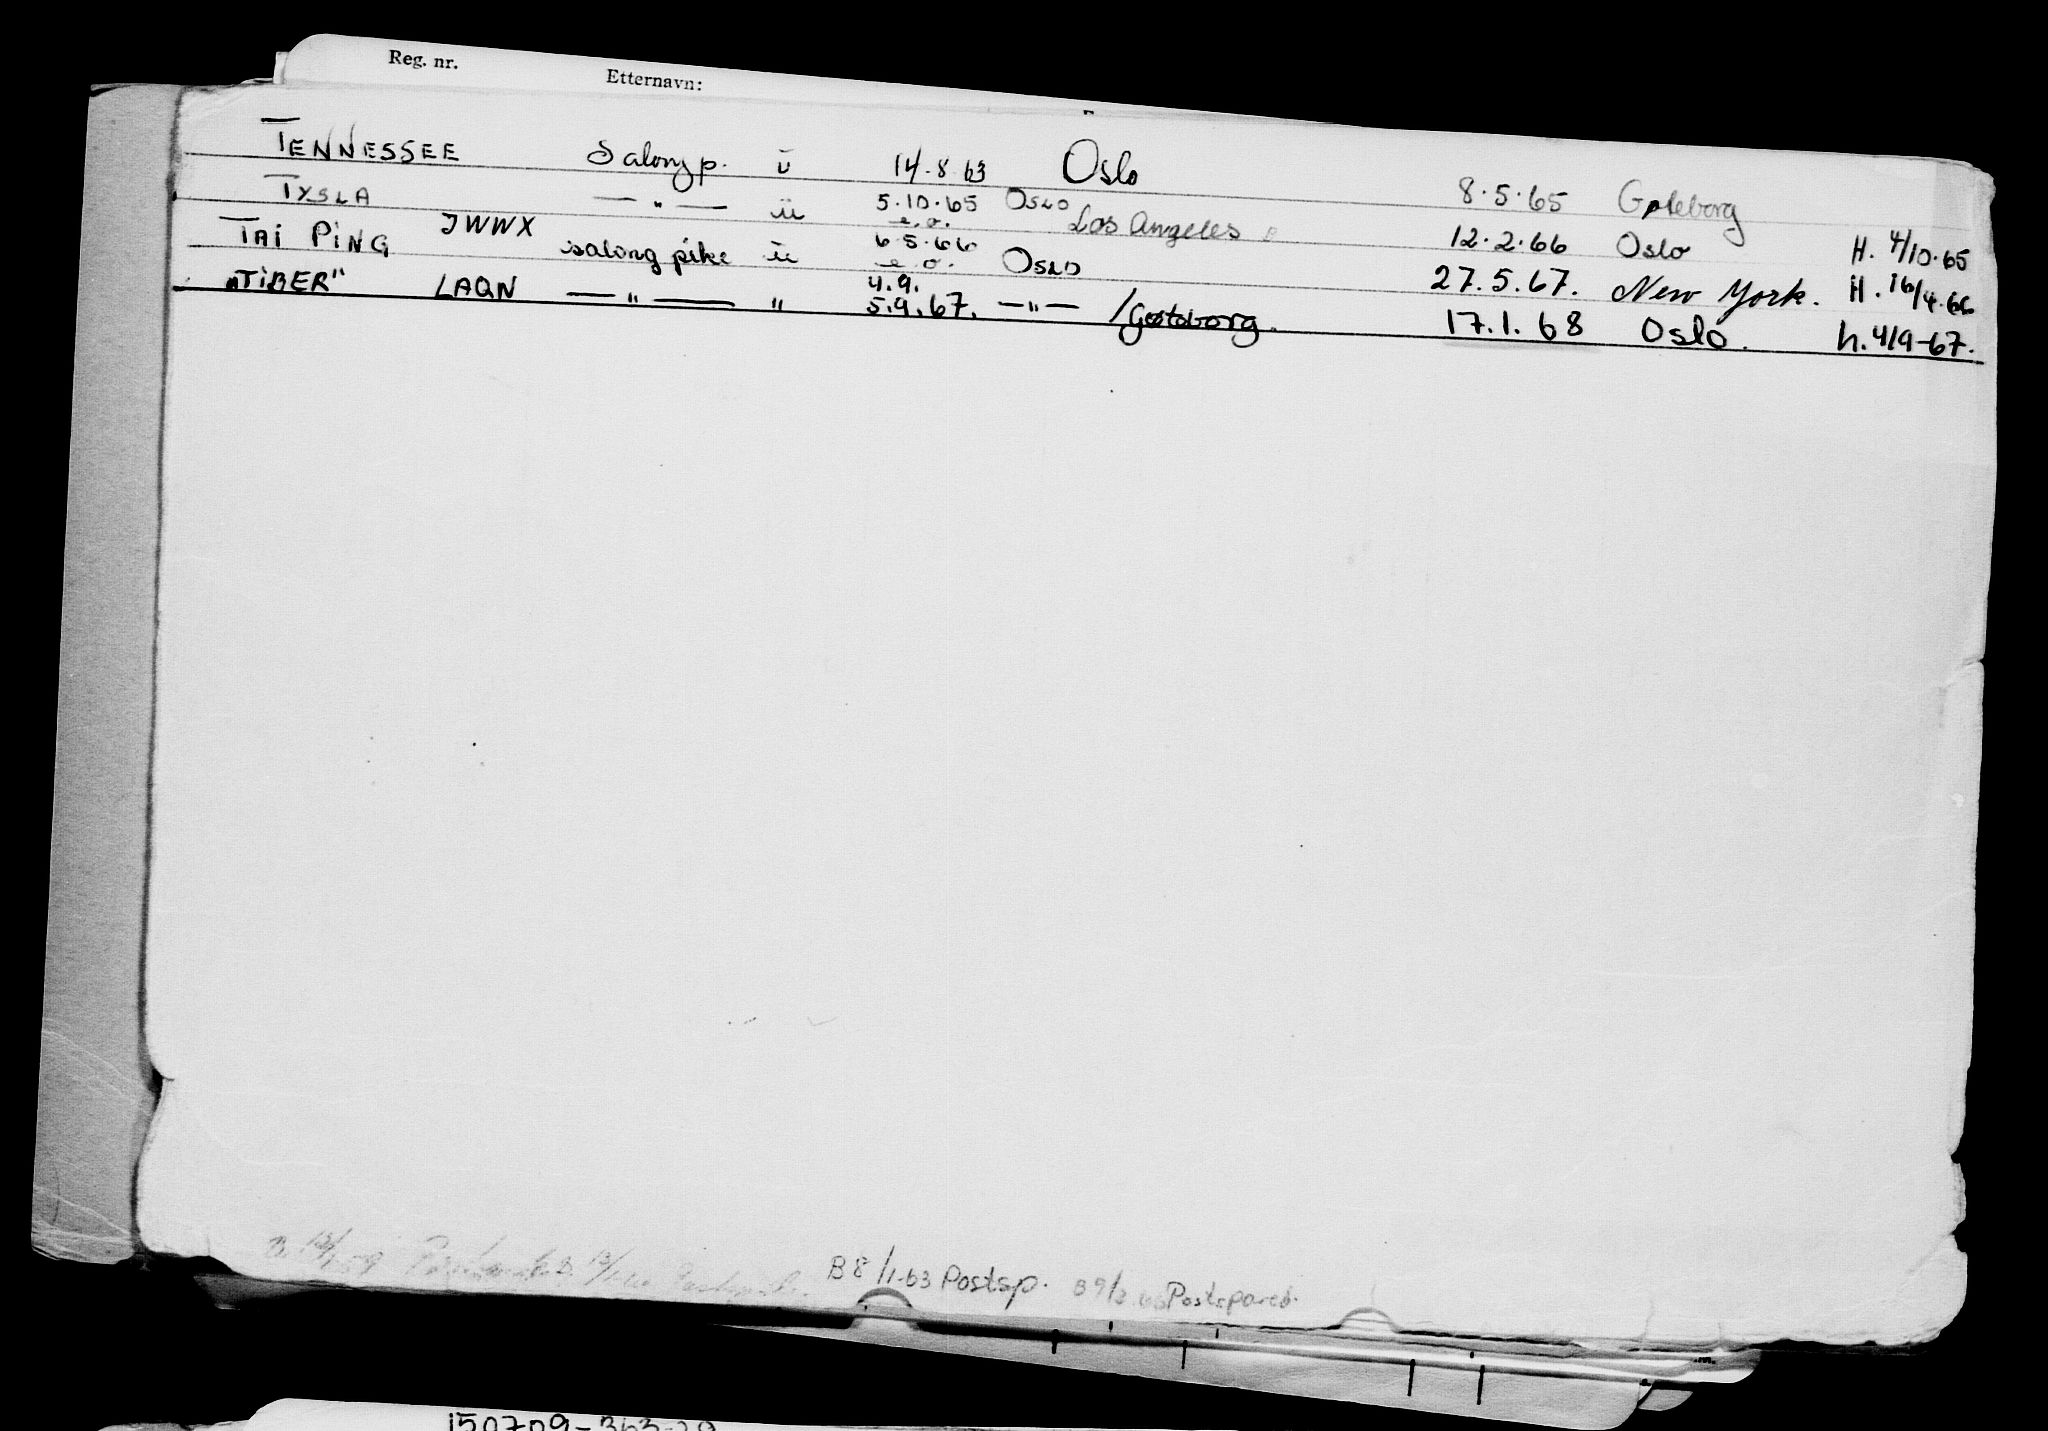 Reg. nr. Etternavn:
TENNESSEE Salongp. ü 14.8.63 Oslo 8.5.65 Gøteborg
TYSLA — " — ü 5.10.65 Oslo 12.2.66 Oslo H. 4/10.65
e.o. Los Angeles
TAI PING JWWX salongpike ü 6.5.66 Oslo 27.5.67. New York. H. 16/4.66
e.o.
„TIBER" LAQN — " — " 4.9.
5.9.67. — " — /Gøteborg. 17.1.68 Oslo. h. 4/9-67.
B 8/1-63 Postsp. B 9/3 Postspareb.
150709-363-29